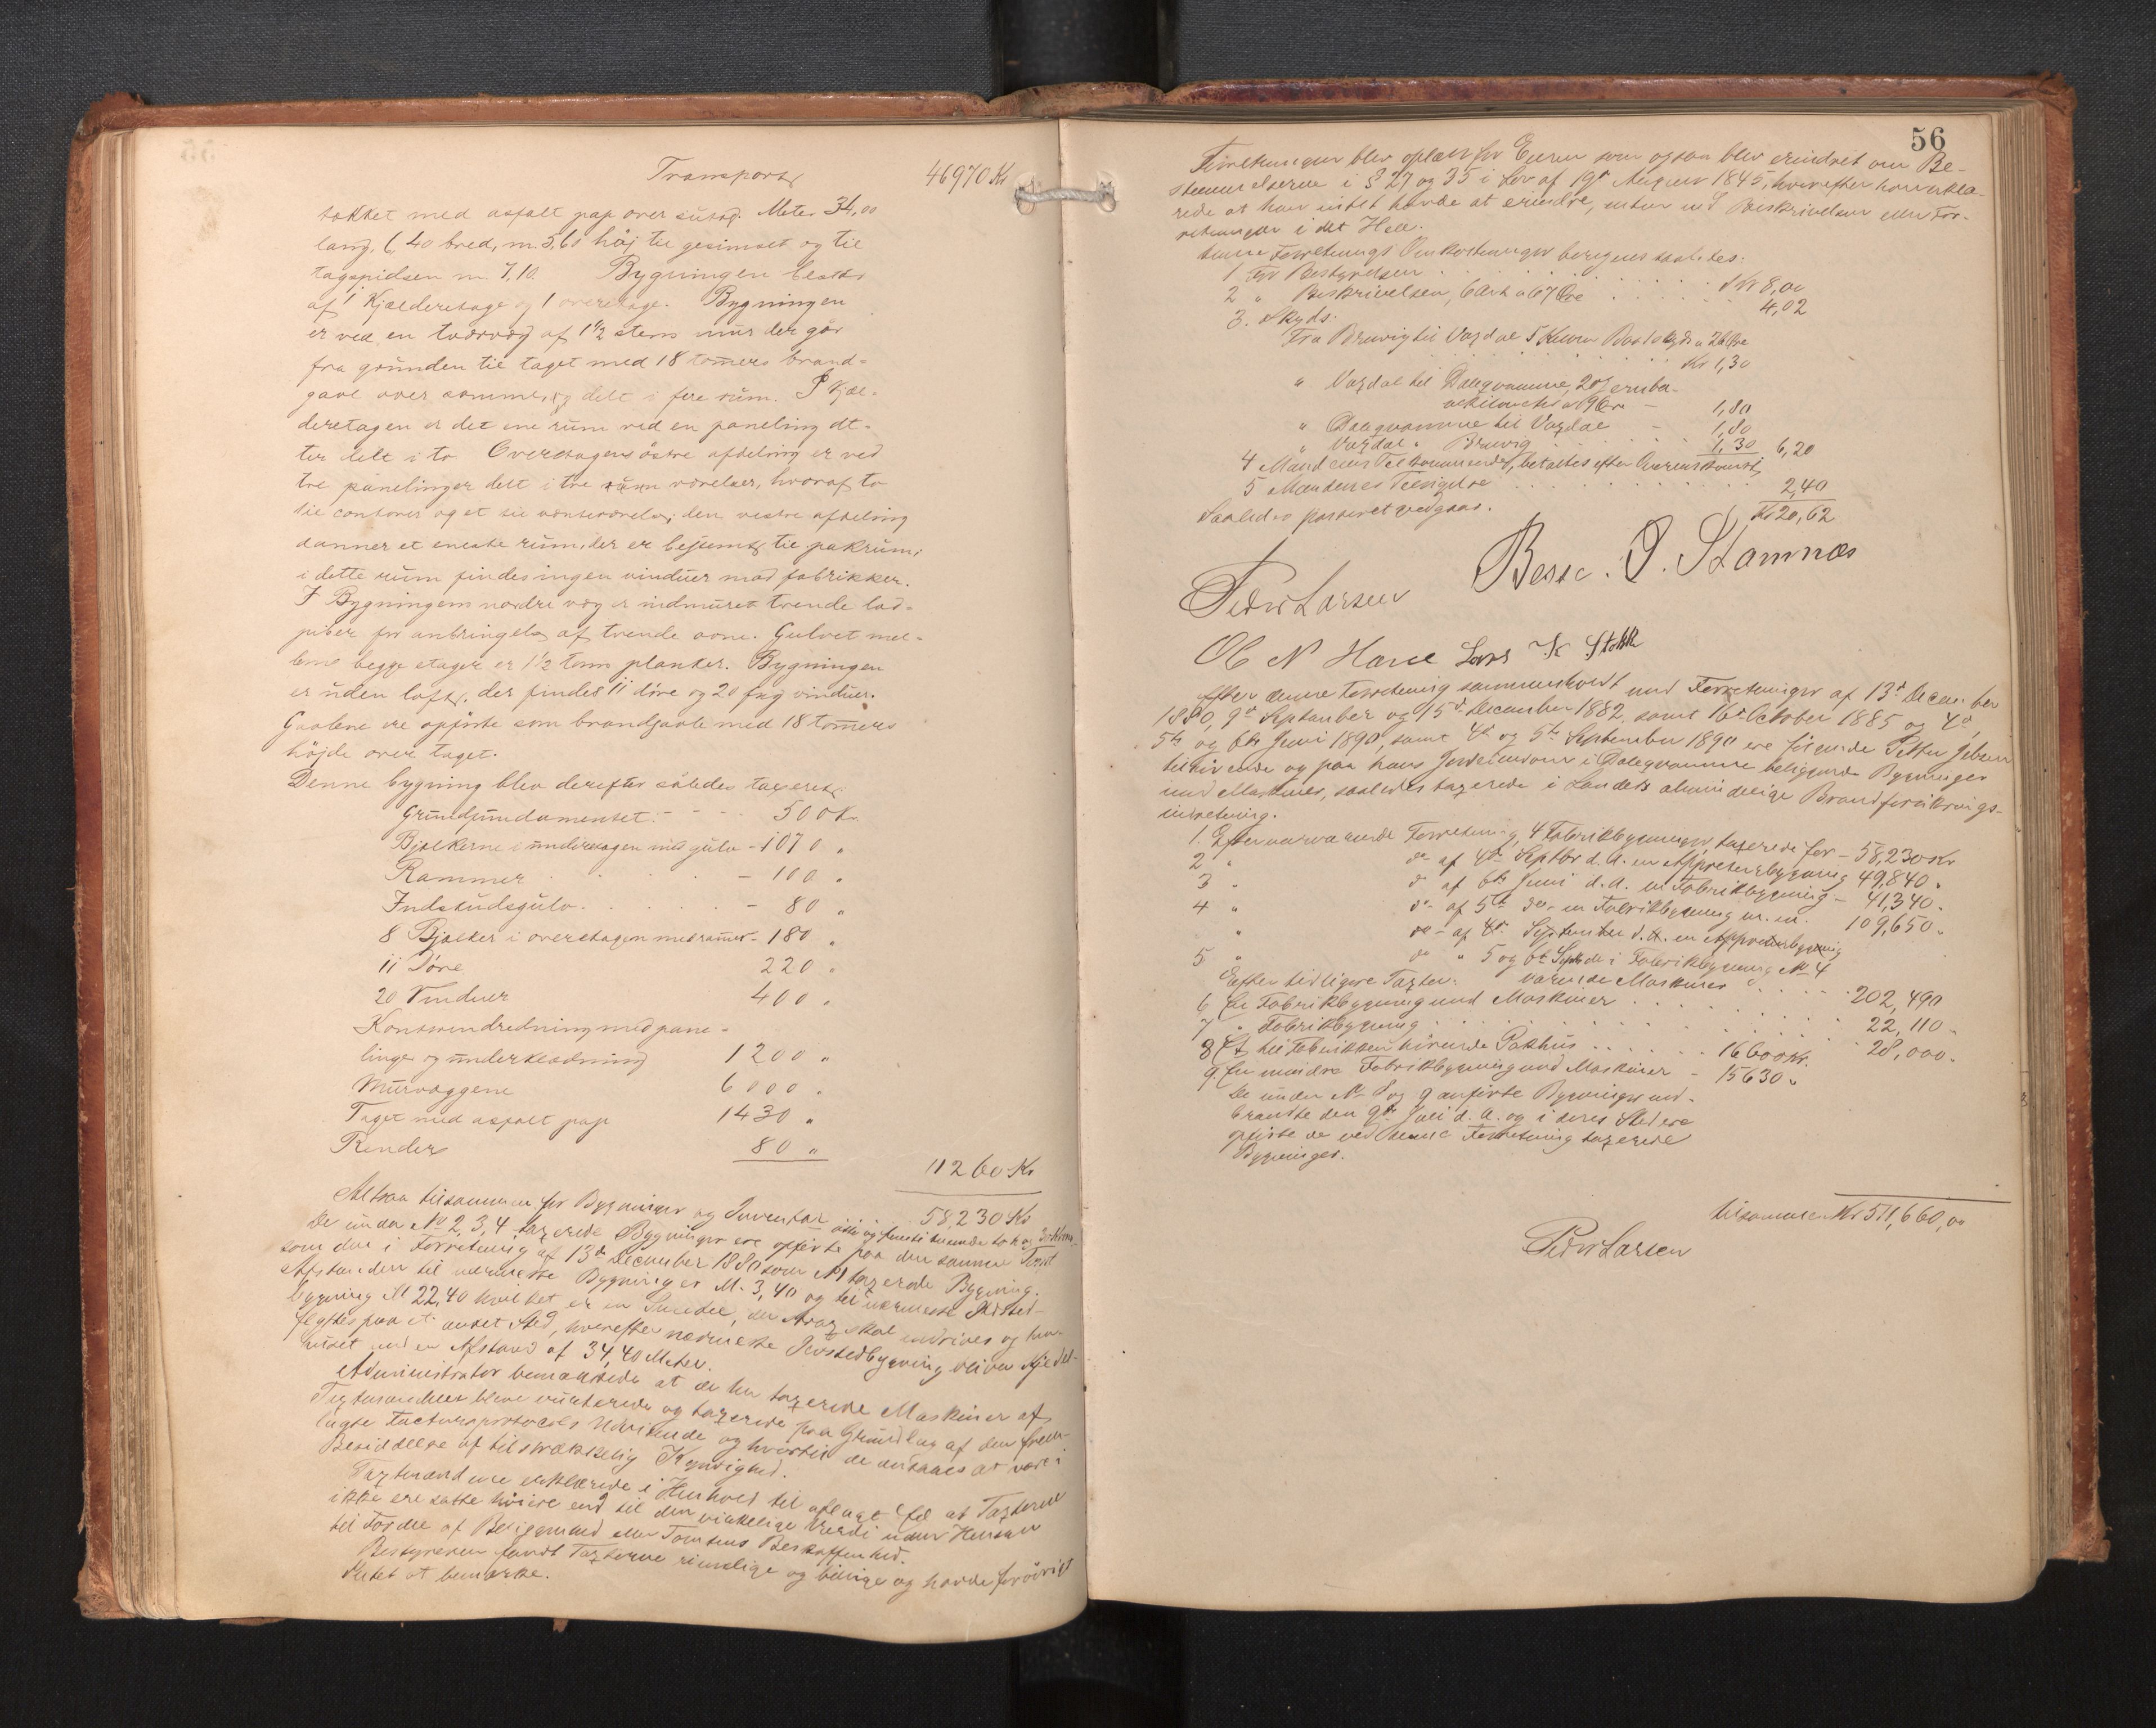 Transport 46970 Kr
takket med asfalt pap over sutag. Meter 34,00
lang, 6,40 bred, m. 5,60 høj til gesimset og til
tagspidsen m. 7,10. Bygningen består
af 1 Kjælderetage og 1 overetage. Bygningen
er ved en tværvæg af 1 1/2 stens mur der går
fra grunden til taget med 18 tommers brand-
gavl over samme, og delt i fere rum. I Kjæl-
deretagen er det ene rum ved en paneling at-
ter delt i to. Overetagens østre afdeling er ved
tre panelinger delt i tre rum værelser, hvoraf to
til contorer og et til venteværelse; den vestre afdeling
danner et eneste rum, der er bestemt til pakrum;
i dette rum findes ingen vinduer mod fabrikken.
I Bygningens nordre væg er indmuret tvende lad-
piber for anbringelse af tvende ovne. Gulvet mel-
lem begge etager er 1 1/2 toms planker. Bygningen
er uden loft, der findes 11 døre og 20 fag vinduer.
Gavlene ere opførte som brandgavle med 18 tommers
højde over taget.
Denne bygning blev derefter således taxeret:
Grundfundamentet: - - 500 Kr.
Bjælkerne i underetagen med gulv - 1070 "
Rammer - 100 "
Indskudsgulv - 80 "
8 Bjælker i overetagen med ramer - 180 "
11 Døre 220 "
20 Vinduer 400 "
Kontorindredning med pane-
linger og underklædning 1200 "
Murvæggene 6000 "
Taget med asfalt pap 1430 "
Render 80 "
11260 Kr
Altsaa tilsammen for Bygninger og Inventar 58,230 Kr
De under No 2, 3, 4 taxerede Bygninger ere opførte paa den samme Tomt
som den i Forretning af 13de December 1880 som No 1 taxerede Bygning.
Afstanden til nærmeste Bygning er M. 3,40 og til nærmeste Ildsted-
bygning M 22,40 hvilket er en Smedie, der strax skal indrives og hen-
flyttes paa et andet Sted, hvorefter nærmeste Ildstedbygning bliver Kjedel-
huset med en Afstand af 34,40 Meter.
Administrator bemærkede at de her taxerede Maskiner af
Taxtmændene bleve vurderede og taxerede paa Grundlag af den frem-
lagte Facturaprotocols Udvisende og hvortil de antages at være i
Besiddelse af tilstrækkelig Kyndighed.
Taxtmændene erklærede i Henhold til aflagt Ed at Taxterne
ikke ere satte høiere end til den virkelige Værdi uden Hensyn
til Fordel af Beliggenhed eller Tomtens Beskaffenhed.
Bestyreren fandt Taxterne rimelige og billige og havde forøvrigt
Intet at bemærke.
56
Forretningen blev oplæst for Eieren som ogsaa blev erindret om Be-
stemmelserne i § 27 og 35 i Lov af 19de August 1845, hvorefter han erklæ-
rede at han intet havde at erindre, enten ved Beskrivelsen eller For-
retningen i det Hele.
Denne Forretnings Omkostninger beregnes saaledes:
1 For Bestyrelsen Kr 8,00
2 " Beskrivelsen, 6 Ark a 67 Øre 4,02
3. Skyds:
Fra Bruvig til Vaxdal 5 Kilom Baadskyds a 26 Øre
Kr 1,30
" Vaxdal til Dalegvamme, 20 Jernba-
nekilometer a 9 Øre - 1,80
" Dalegvamme til Vaxdal - 1,80
" Vaxdal " Bruvig 1,30 6,20
4 Mændenes Tilkommende, betaltes efter Overenskomst,
5 Mændenes Tilsigelse 2,40
Saaledes passeret vedgaaes. Kr 20,62
Peder Larsen Besse. P. Stamnæs
Ole N Horve Lars K Stokke
Efter denne Forretning sammenholdt med Forretninger af 13de December
1880, 9de September og 15de December 1882, samt 16de October 1885 og 4de,
5te og 6te Juni 1890, samt 4de og 5te September 1890 ere følgende Petter Jebsen
tilhørende og paa hans Jordeiendom i Dalegvamme beliggende Bygninger
med Maskiner, saaledes taxerede i Landets almindelige Brandforsikrings-
indretning.
1. Efter nærværende Forretning, 4 Fabrikbygninger, taxerede for - 58,230 Kr
2 " do af 4de Septbr d. A. en Appreturbygning 49,840 "
3 " do af 6te Juni d. A. en Fabrikbygning - 41,340 "
4 " do - af 5te do - en Fabrikbygning m. m. 109,650 "
" do - af 4de September d. A. en Appreturbygning
5 " do " 5 og 6te Septbr de i Fabrikbygning No 4
værende Maskiner 202,490
Efter tidligere Taxter:
6 En Fabrikbygning med Maskiner 22,110 "
7 " Fabrikbygning 28,000 "
8 Et til Fabrikken hørende Pakhus 16600 Kr.
9 En mindre Fabrikbygning med Maskiner - 15630 "
De under No 8 og 9 anførte Bygninger ned-
brændte den 9de Juli d. A. og i deres Sted ere
opførte de ved denne Forretning taxerede
Bygninger.
tilsammen Kr 511,660,00
Peder Larsen